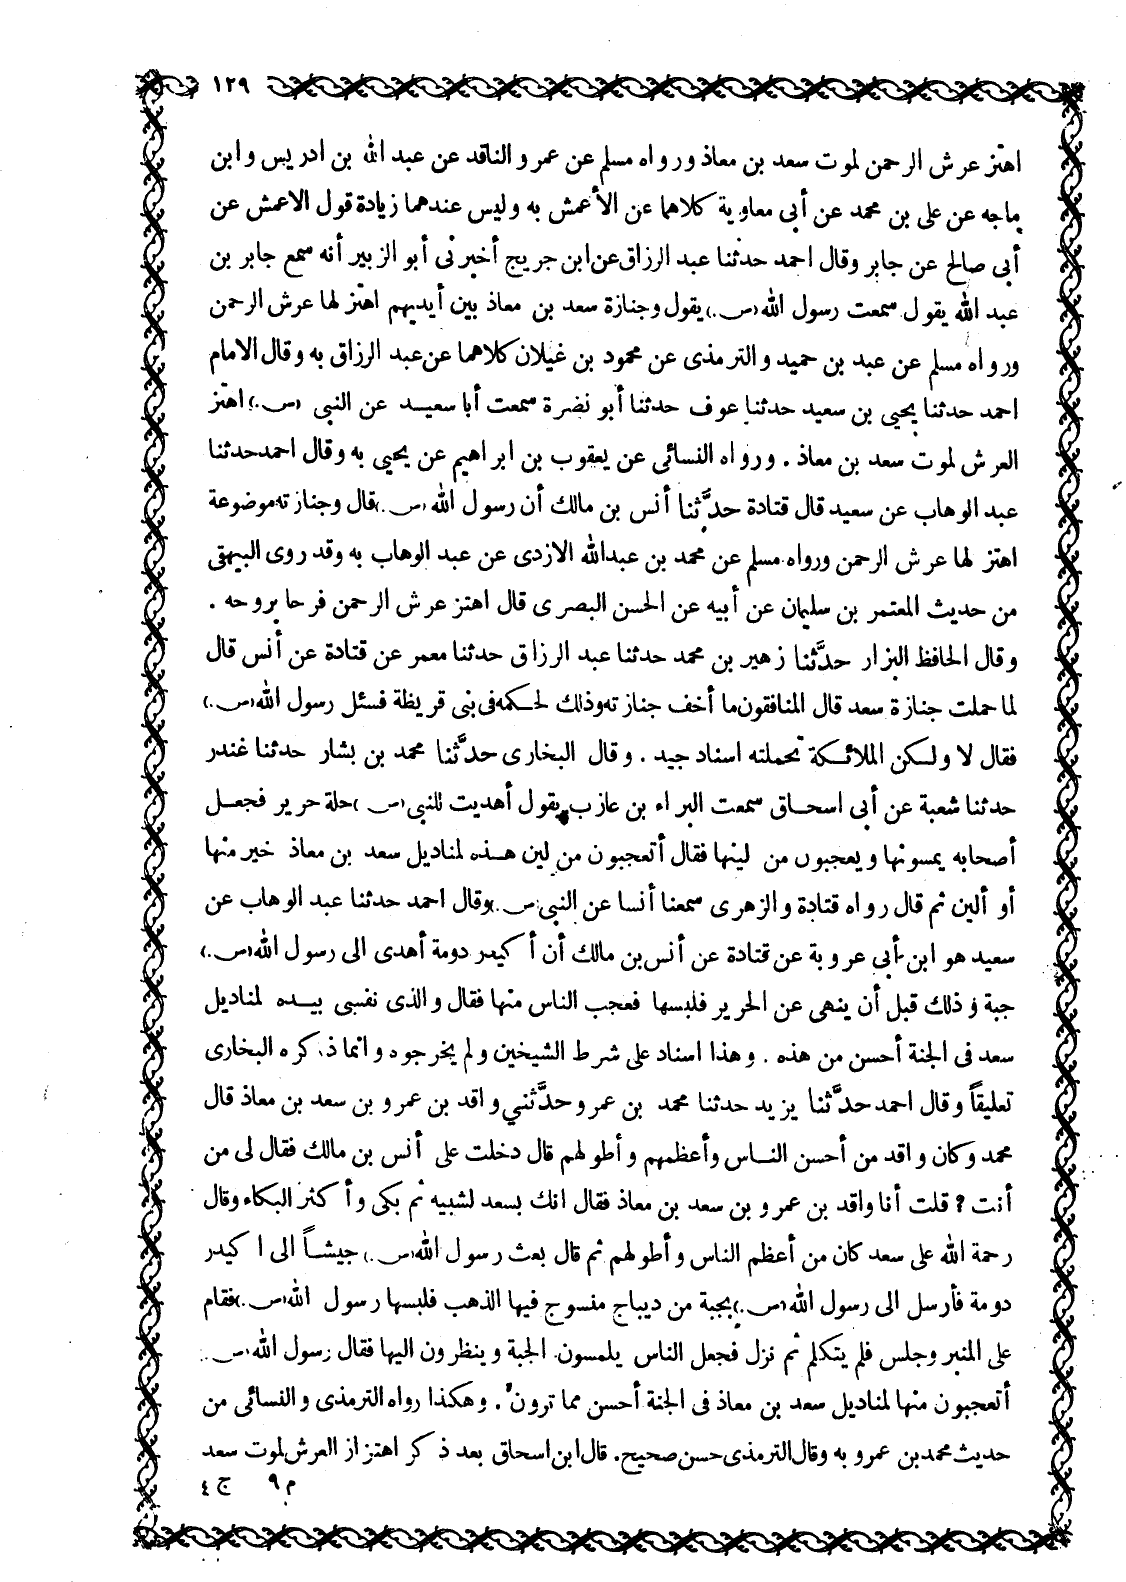 ١٢٩
اهتز عرش الرحمن لموت سعد بن معاذ ورواه مسلم عن عمرو الناقد عن عبد الله بن ادريس وابن
ماجه عن على بن محمد عن أبى معاوية كلاهما عن الأعمش به وليس عندهما زيادة قول الاعمش عن
أبى صالح عن جابر وقال احمد حدثنا عبد الرزاق عن ابن جريج أخبرنى أبو الزبير أنه سمع جابر بن
عبد الله يقول سمعت رسول الله (ص.) يقول وجنازة سعد بن معاذ بين أيديهم اهتز لها عرش الرحمن
ورواه مسلم عن عبد بن حميد والترمذى عن محمود بن غيلان كلاهما عن عبد الرزاق به وقال الامام
احمد حدثنا يحيى بن سعيد حدثنا عوف حدثنا أبو نضرة سمعت أبا سعيد عن النبى (ص.) اهتز
العرش لموت سعد بن معاذ . ورواه النسائى عن يعقوب بن ابراهيم عن يحيى به وقال احمد حدثنا
عبد الوهاب عن سعيد قال قتادة حدَّثنا أنس بن مالك أن رسول الله (ص.) قال وجنازته موضوعة
اهتز لها عرش الرحمن ورواه مسلم عن محمد بن عبدالله الازدى عن عبد الوهاب به وقد روى البيهقى
من حديث المعتمر بن سليمان عن أبيه عن الحسن البصرى قال اهتز عرش الرحمن فرحا بروحه .
وقال الحافظ البزار حدَّثنا زهير بن محمد حدثنا عبد الرزاق حدثنا معمر عن قتادة عن أنس قال
لما حملت جنازة سعد قال المنافقون ما أخف جنازته وذلك لحكمه فى بنى قريظة فسئل رسول الله (ص.)
فقال لا ولكن الملائكة تحملته اسناد جيد . وقال البخارى حدَّثنا محمد بن بشار حدثنا غندر
حدثنا شعبة عن أبى اسحاق سمعت البراء بن عازب يقول أهديت للنبى (ص) حلة حرير فجعل
أصحابه يمسونها ويعجبون من لينها فقال أتعجبون من لين هذه لمناديل سعد بن معاذ خير منها
أو ألين ثم قال رواه قتادة والزهرى سمعنا أنسا عن النبى (ص.) وقال احمد حدثنا عبد الوهاب عن
سعيد هو ابن أبى عروبة عن قتادة عن أنس بن مالك أن أكيدر دومة أهدى الى رسول الله (ص.)
جبة وذلك قبل أن ينهى عن الحرير فلبسها فعجب الناس منها فقال والذى نفسى بيده لمناديل
سعد فى الجنة أحسن من هذه . وهذا اسناد على شرط الشيخين ولم يخرجوه وانما ذكره البخارى
تعليقاً وقال احمد حدَّثنا يزيد حدثنا محمد بن عمرو حدَّثني واقد بن عمرو بن سعد بن معاذ قال
محمد وكان واقد من أحسن الناس وأعظمهم وأطولهم قال دخلت على أنس بن مالك فقال لى من
أنت ? قلت أنا واقد بن عمرو بن سعد بن معاذ فقال انك بسعد لشبيه ثم بكى وأكثر البكاء وقال
رحمة الله على سعد كان من أعظم الناس وأطولهم ثم قال بعث رسول الله (ص.) جيشاً الى اكيدر
دومة فأرسل الى رسول الله (ص.) بجبة من ديباج منسوج فيها الذهب فلبسها رسول الله (ص.) فقام
على المنبر وجلس فلم يتكلم ثم نزل فجعل الناس يلمسون الجبة وينظرون اليها فقال رسول الله (ص.
أتعجبون منها لمناديل سعد بن معاذ فى الجنة أحسن مما ترون . وهكذا رواه الترمذى والنسائى من
حديث محمد بن عمرو به وقال الترمذى حسن صحيح . قال ابن اسحاق بعد ذكر اهتزاز العرش لموت سعد
م ٩ ج ٤